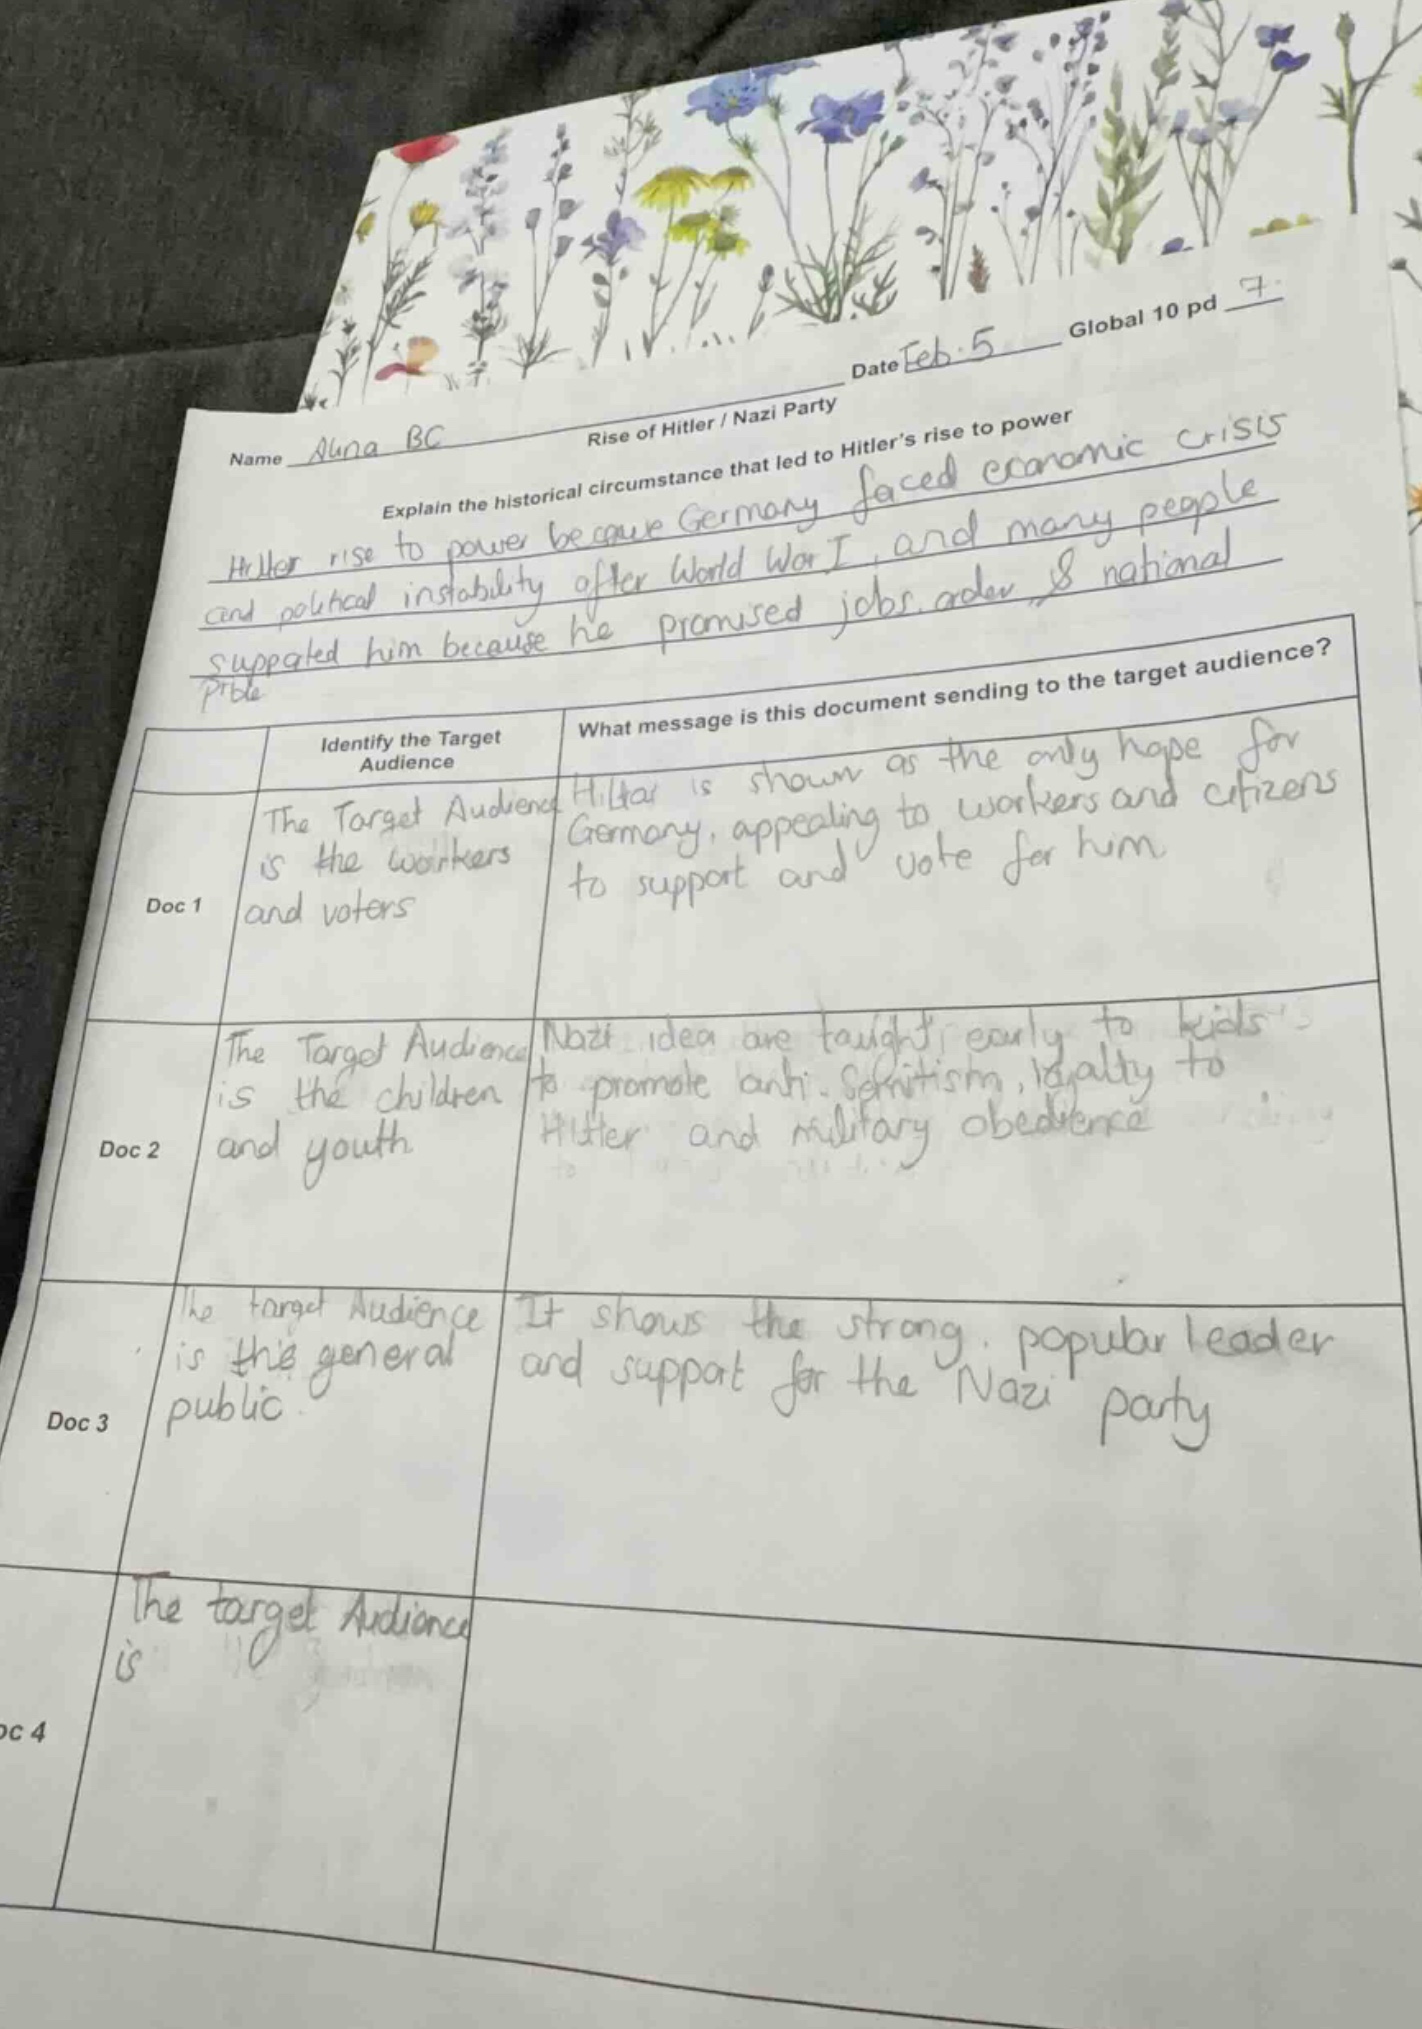 Name Alina BC Date Feb. 5 Global 10 pd 7.
Rise of Hitler / Nazi Party
Explain the historical circumstance that led to Hitler's rise to power
Hitler rise to power because Germany faced economic crisis
and political instability after World War I, and many people
supported him because he promised jobs, order, & national
pride
Identify the Target
Audience
What message is this document sending to the target audience?
Doc 1
The Target Audience
is the workers
and voters
Hiltar is shown as the only hope for
Germany, appealing to workers and citizens
to support and vote for him
Doc 2
The Target Audience
is the children
and youth
Nazi idea are taught early to kids
to promote anti-Semitism, loyalty to
Hitler and military obedience
Doc 3
The target Audience
is the general
public.
It shows the strong, popular leader
and support for the Nazi party
oc 4
The target Audience
is